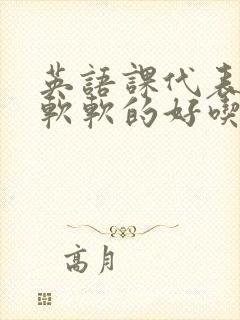 英語課代表
軟軟的好喫
高月